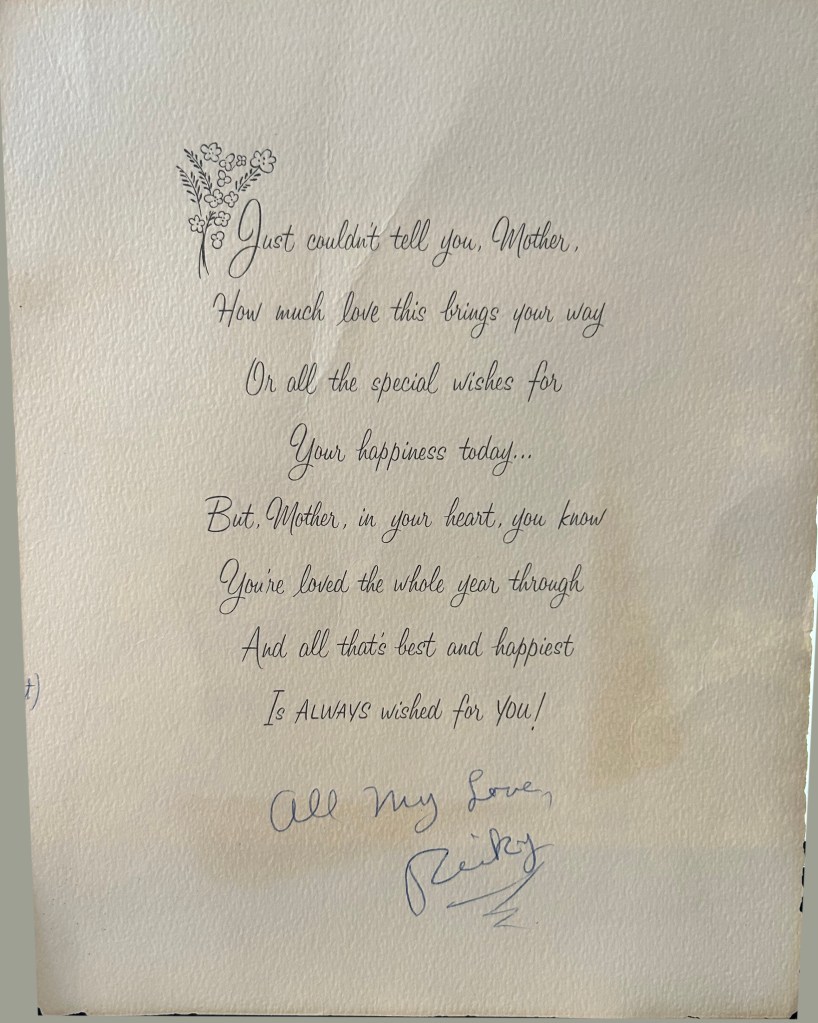 Just couldn't tell you, Mother,
How much love this brings your way
Or all the special wishes for
Your happiness today...
But, Mother, in your heart, you know
You're loved the whole year through
And all that's best and happiest
Is ALWAYS wished for YOU!
t)
All My Love,
Ricky